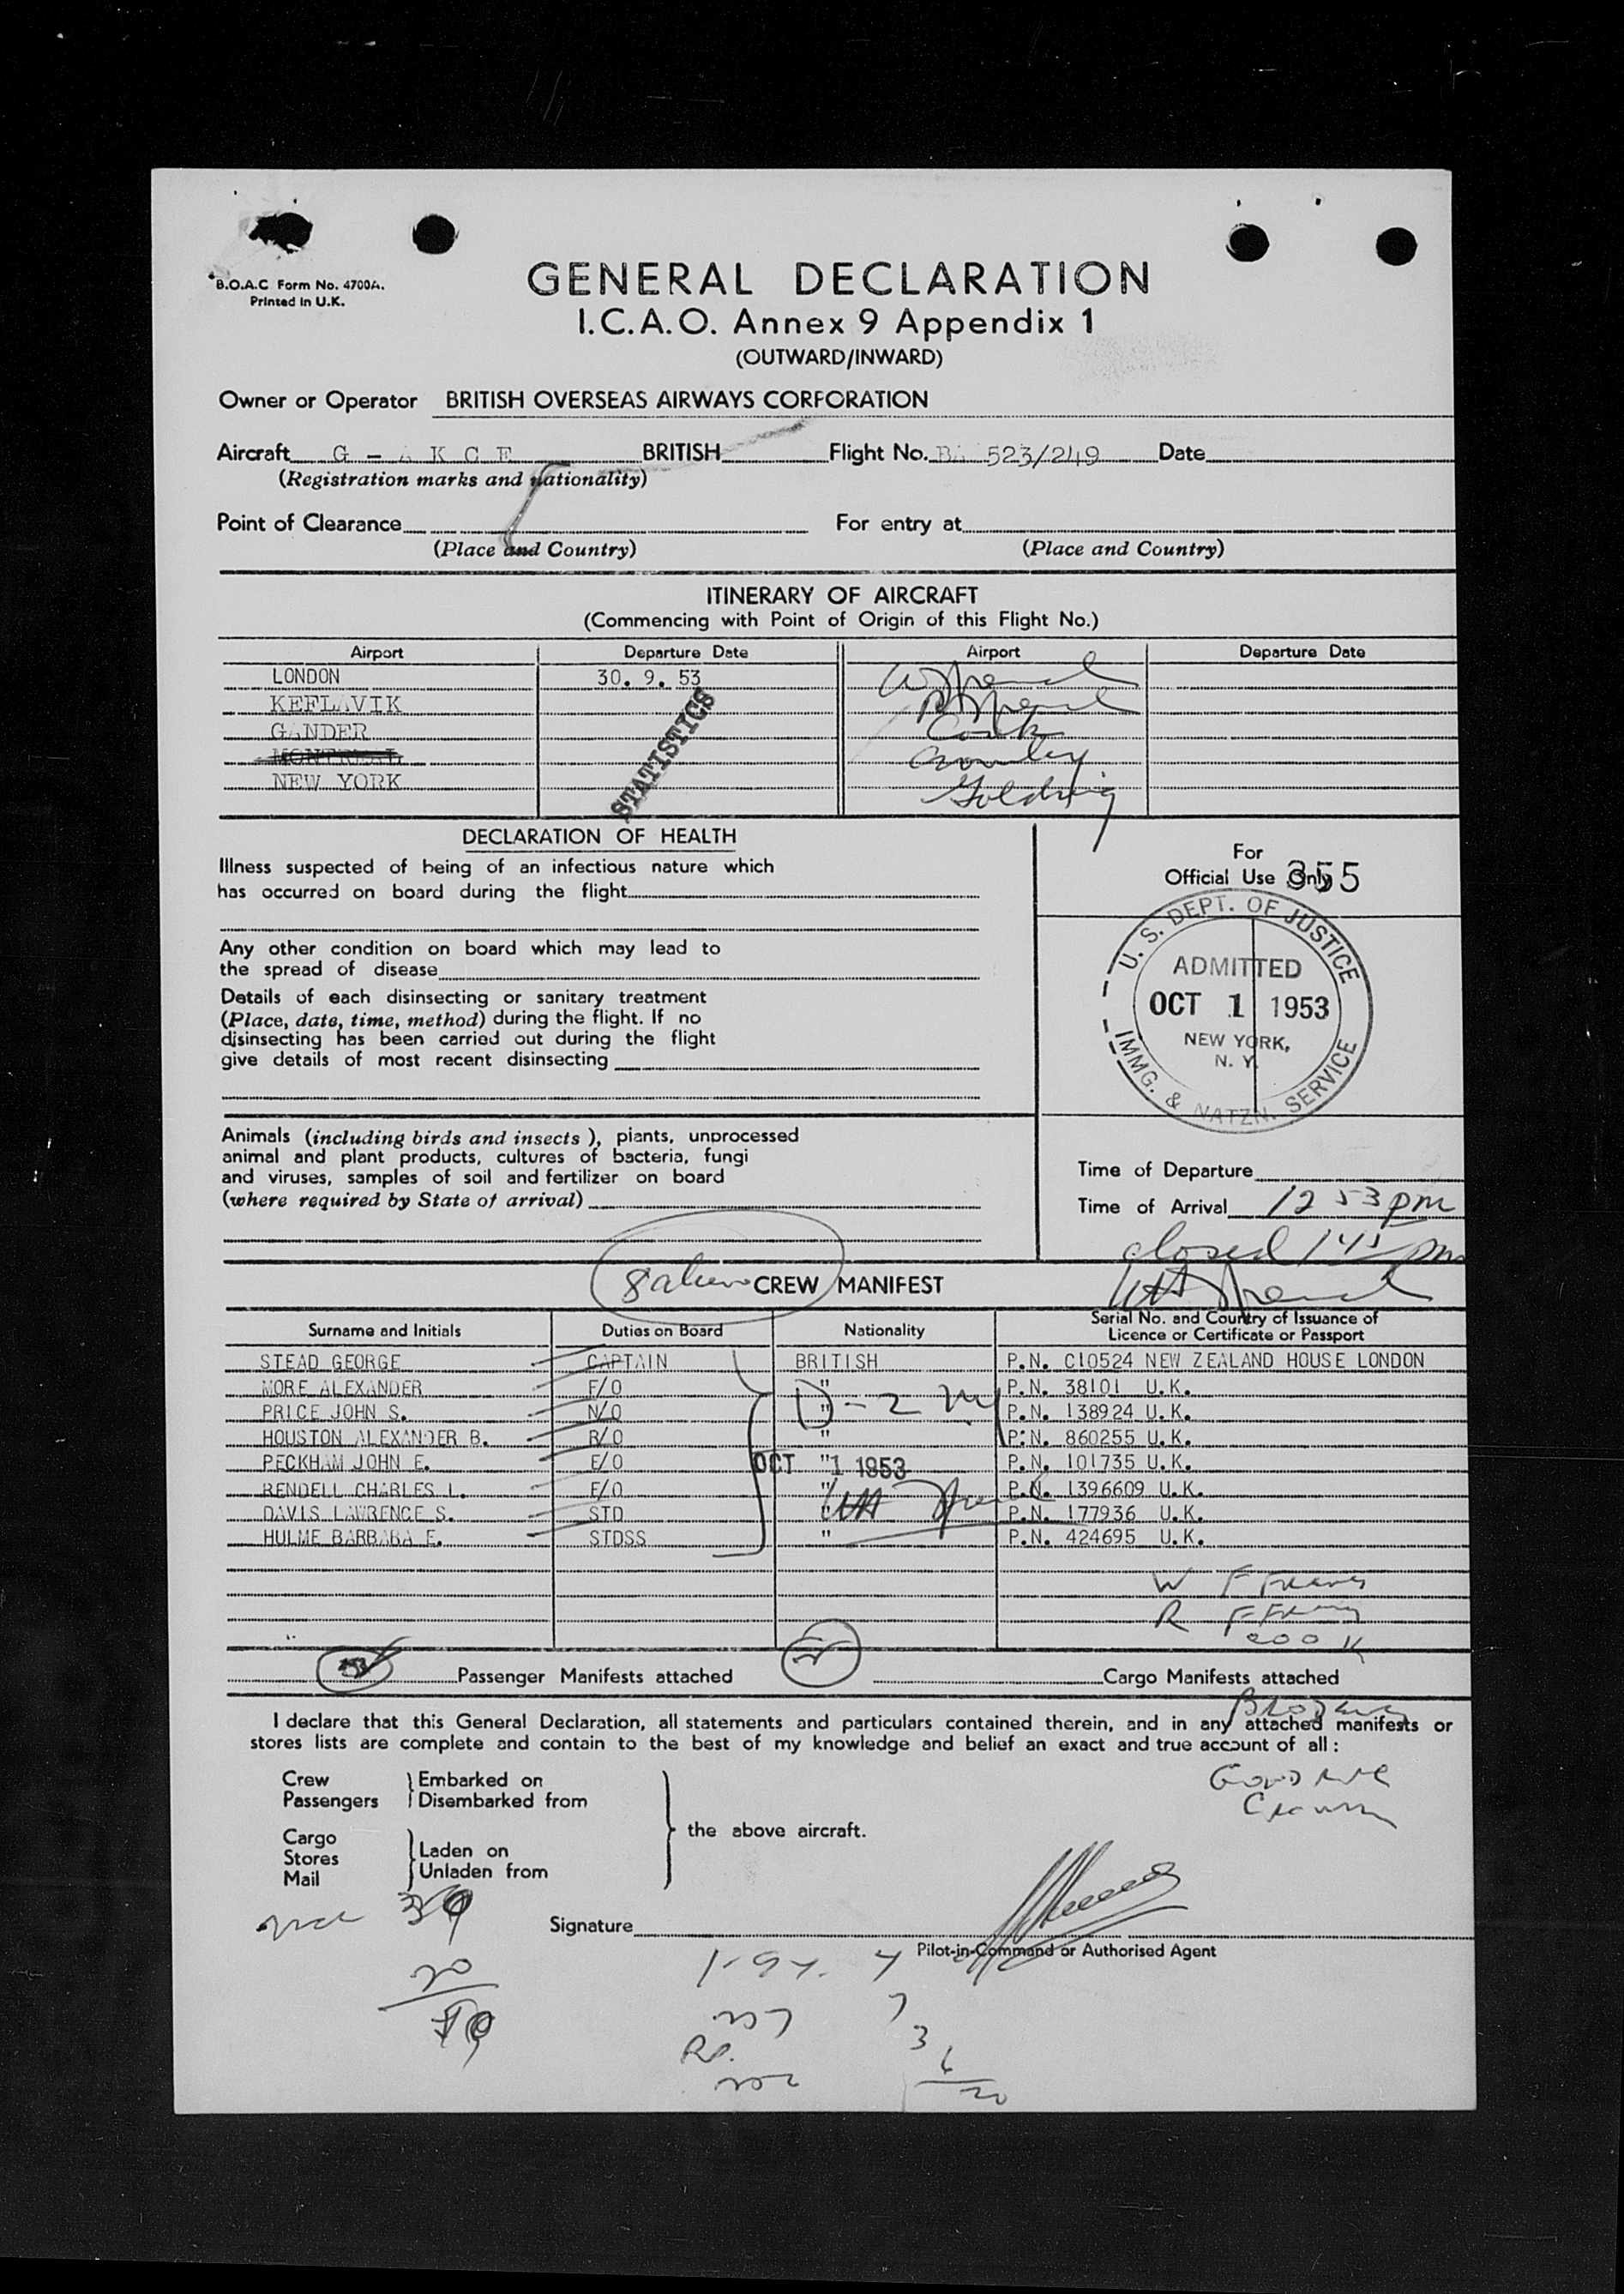 B.O.A.C Form No. 4700A.
Printed in U.K.
GENERAL DECLARATION
I.C.A.O. Annex 9 Appendix 1
(OUTWARD/INWARD)
Owner or Operator BRITISH OVERSEAS AIRWAYS CORPORATION
Aircraft G - A K C E BRITISH Flight No. BA 523/249 Date
(Registration marks and nationality)
Point of Clearance For entry at
(Place and Country) (Place and Country)
ITINERARY OF AIRCRAFT
(Commencing with Point of Origin of this Flight No.)
Airport Departure Date Airport Departure Date
LONDON 30. 9. 53
KEFLAVIK
GANDER
MONTREAL
NEW YORK
Goldring
STATISTICS
DECLARATION OF HEALTH
Illness suspected of being of an infectious nature which
has occurred on board during the flight
Any other condition on board which may lead to
the spread of disease
Details of each disinsecting or sanitary treatment
(Place, date, time, method) during the flight. If no
disinsecting has been carried out during the flight
give details of most recent disinsecting
Animals (including birds and insects ), plants, unprocessed
animal and plant products, cultures of bacteria, fungi
and viruses, samples of soil and fertilizer on board
(where required by State of arrival)
For
Official Use Only
355
U. S. DEPT. OF JUSTICE
ADMITTED
OCT 1 1953
NEW YORK,
N. Y.
IMMG. & NATZN. SERVICE
Time of Departure
Time of Arrival 12 53 pm
closed 145 pm
8 alien CREW MANIFEST
Surname and Initials Duties on Board Nationality Serial No. and Country of Issuance of
Licence or Certificate or Passport
STEAD GEORGE CAPTAIN BRITISH P.N. C10524 NEW ZEALAND HOUSE LONDON
MORE ALEXANDER F/O " P.N. 38101 U.K.
PRICE JOHN S. N/O " P.N. 138924 U.K.
HOUSTON ALEXANDER B. R/O " P.N. 860255 U.K.
PECKHAM JOHN E. E/O " P.N. 101735 U.K.
RENDELL CHARLES L. E/O " P.N. 1396609 U.K.
DAVIS LAWRENCE S. STD " P.N. 177936 U.K.
HULME BARBARA E. STDSS " P.N. 424695 U.K.
D-2
OCT 1 1953
Passenger Manifests attached Cargo Manifests attached
I declare that this General Declaration, all statements and particulars contained therein, and in any attached manifests or
stores lists are complete and contain to the best of my knowledge and belief an exact and true account of all :
Crew Embarked on
Passengers Disembarked from
the above aircraft.
Cargo
Stores Laden on
Mail Unladen from
Signature
Pilot-in-Command or Authorised Agent